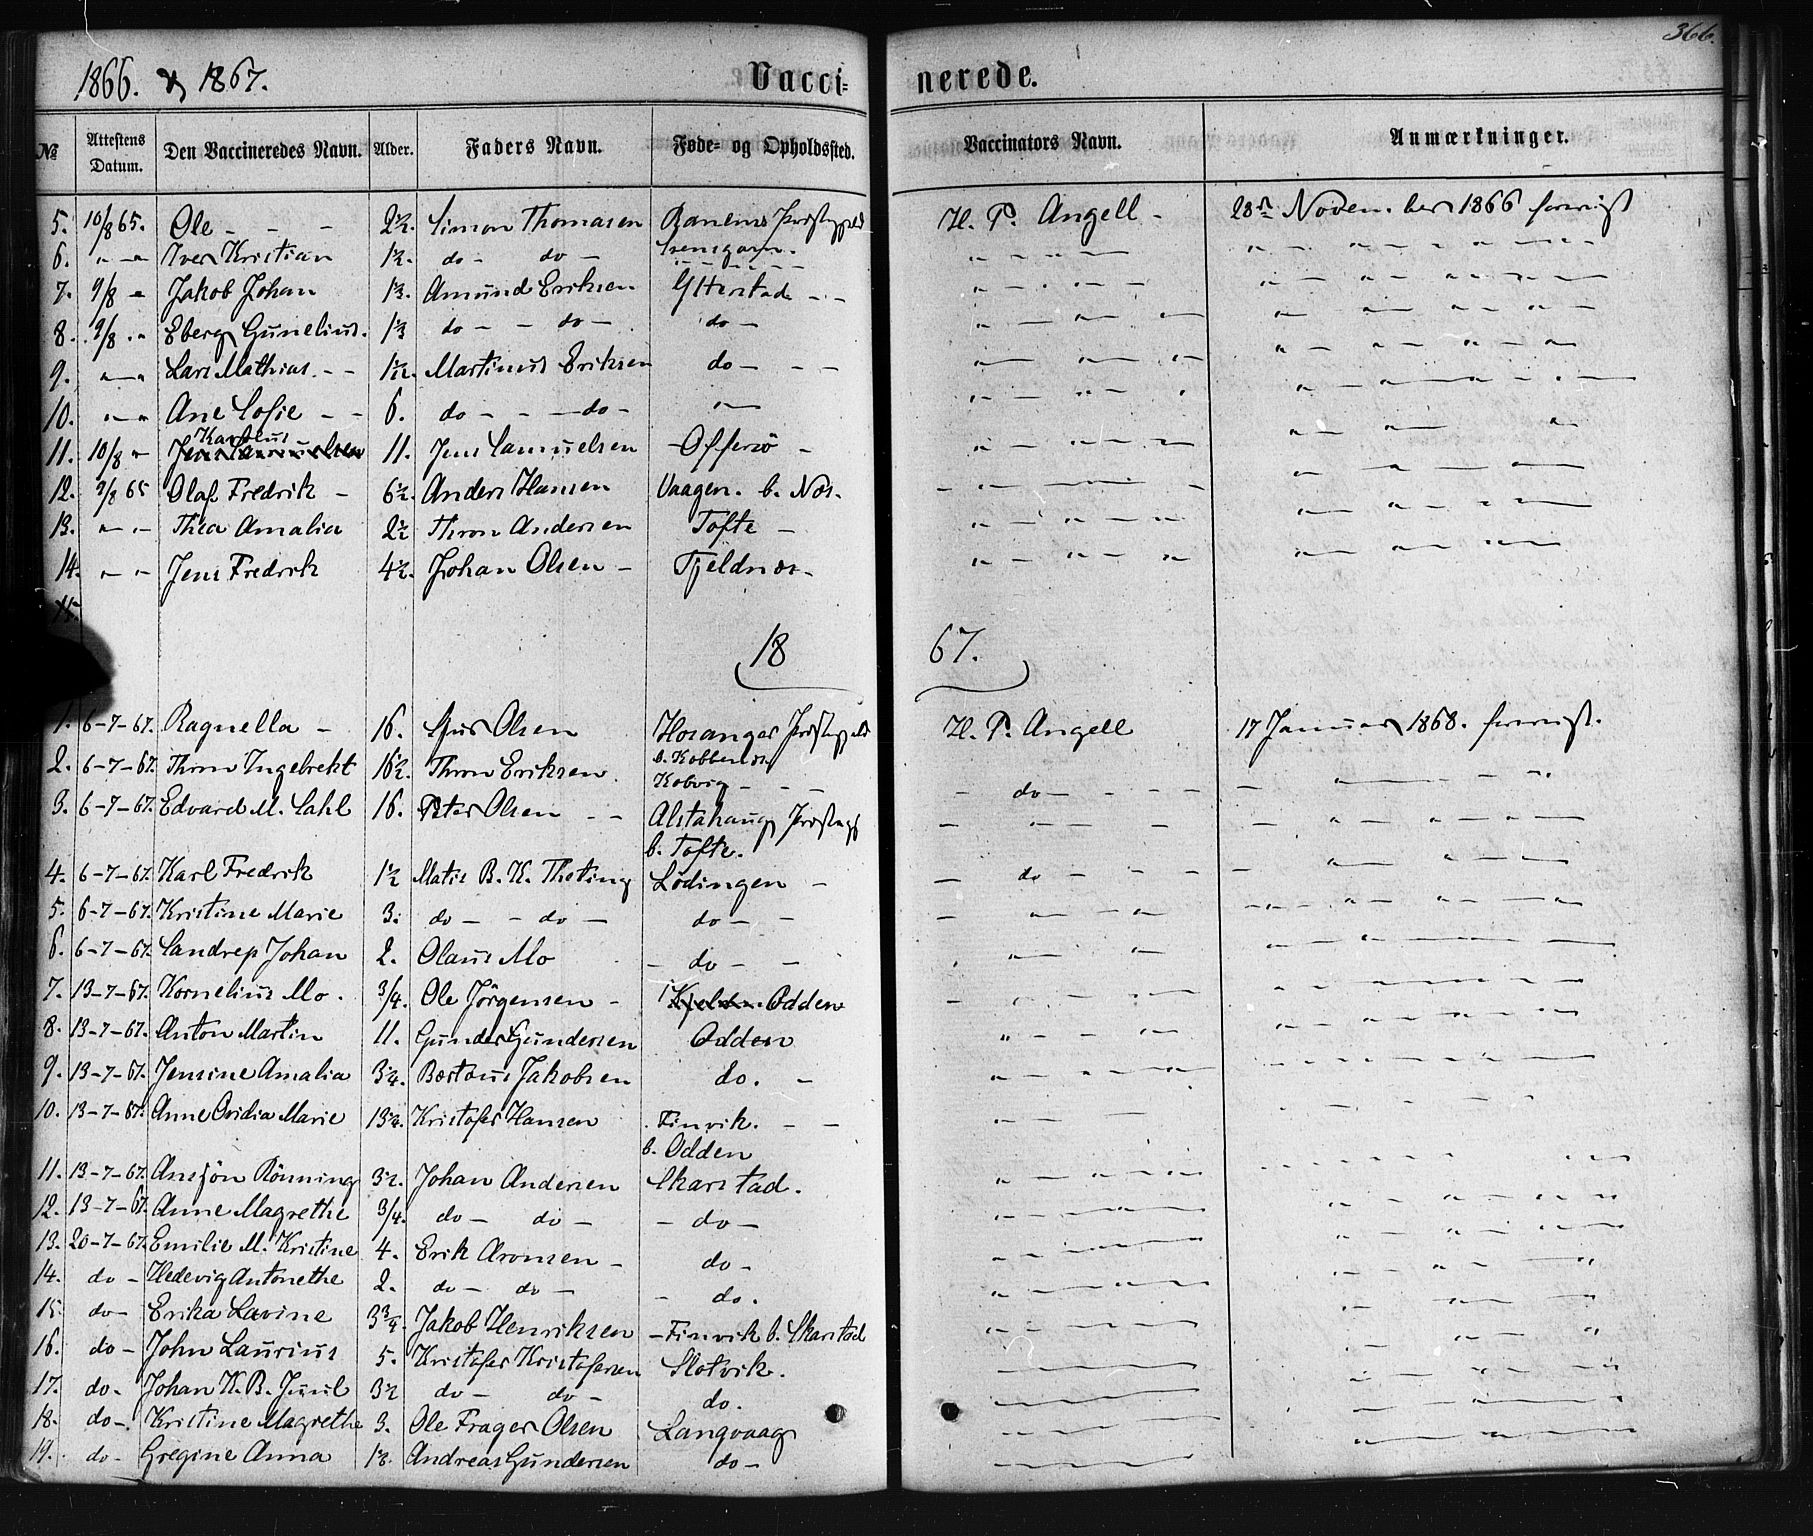 366.
1866. & 1867. Vacci= nerede.
№ Attestens Datum. Den Vaccineredes Navn. Alder. Faders Navn. Føde- og Opholdssted. Vaccinators Navn. Anmærkninger.
5. 10/8 65. Ole - - - 2½. Simon Thomasen Ranens H. P. Angell - 28de November 1866
6. " - " Iver Kristian 1½. do - do -
7. 9/8 " Jakob Johan Amund Eriksen - -
8. 9/8 . " Eberg Gunelius. do - - do - do -
9. " - " Lars Mathias - - Martinus Eriksen do - - -
10. " - " Ane Sofie - - 6. do - - - do - " -
11. 10/8 " Jens Samuelsen 11. Jens Samuelsen - Offersö -
12. 65 Olaf Fredrik - 6½. Anders Hansen Vaagen. b. Næs.
13. " - Thea Amalia 2½ Thron Andersen Tofte -
14. " " Jens Fredrik 4½. Johan Olsen - Tjeldnæs -
15.
18 67.
1. 6-7-67. Ragnella - 16. Olsen H. P. Angell 17 Januar 1868.
2. 6-7-67. Thron Ingebrekt 16½. Thron Eriksen.
Kobvig - - -
- do - - - -
3. 6-7-67. Edvard M. Dahl 16. Peter Olsen - - Alstahaug
b. Tofte.
4. 6-7-67. Karl Fredrik 1½ Matis B. K. Thoting Lödingen - - do - - -
5. 6-7-67. Kristine Marie 3. do - - do - do - -
6. 6-7-67. Sandrep Johan 2. Olaus Mo - do - -
7. 13-7-67. Kornelius Mo. 3/4. Ole Jörgensen - Odden
8. 13-7-67. Anton Martin 11. Gunder Gundersen Odden
9. 13-7-67. Jensine Amalia Jakobsen do. -
10. 13-7-67. Anne Ovidia Marie Kristofer Hansen . Finvik. - -
b. Odden
11. 13-7-67. Ansjön Rönning 3½. Johan Andersen Skarstad.
12. 13-7-67. Anne Magrethe 3/4. do - do - - do -
13. 20-7-67. Emilie M. Kristine 4. Erik Aronsen - do -
14. do - Hedevig Antonethe 2. do - do - - do.
15. do - Erika Lavine 3¾. Jakob Henriksen - Finvik b. Skarstad
16. do - John Laurius 5. Kristofer Kristofersen Slotvik.
17. do - Johan K. B. Juul 3½ do - do - do.
18. do - Kristine Magrethe 3. Ole Frager Olsen Langvaag
19. do - Gregine Anna Andreas Gundersen do -